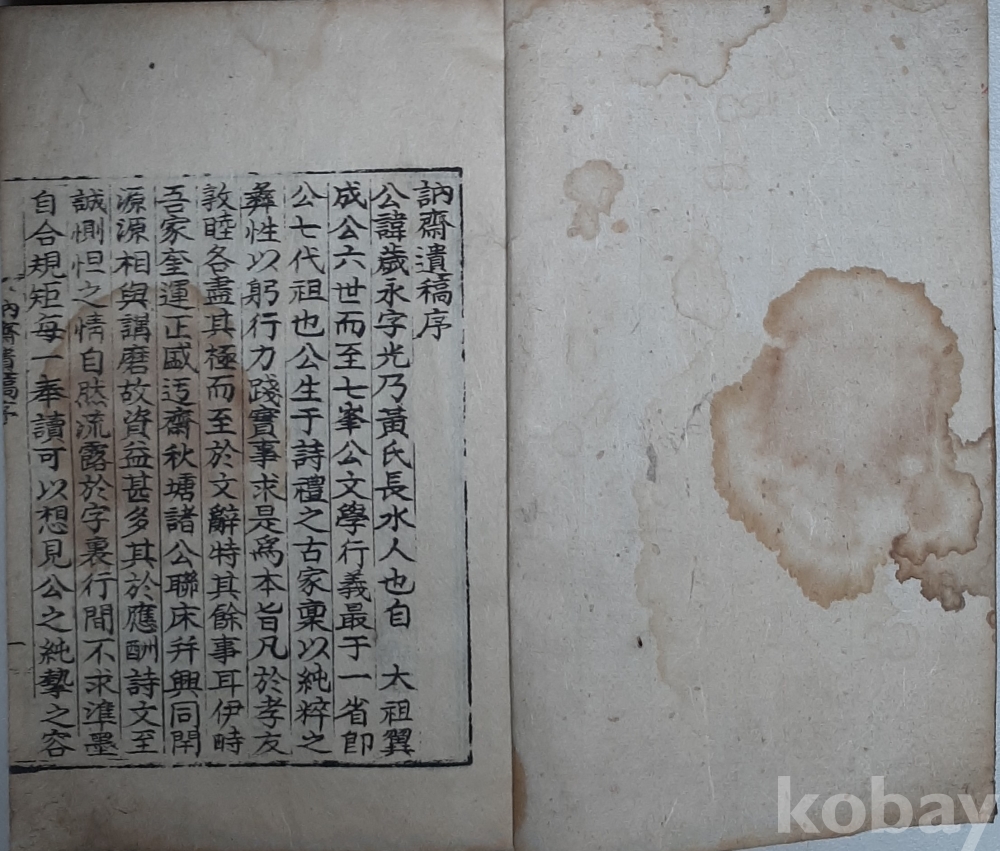 訥齋遺稿序
公諱歲永字光乃黃氏長水人也自 太祖翼
成公六世而至七峯公文學行義最于一省卽
公七代祖也公生于詩禮之古家稟以純粹之
彛性以躬行力踐實事求是爲本旨凡於孝友
敦睦各盡其極而至於文辭特其餘事耳伊時
吾家奎運正盛迃齋秋塘諸公聯床幷興同閈
源源相與講磨故資益甚多其於應酬詩文至
誠惻怛之情自然流露於字裏行間不求準墨
自合規矩每一奉讀可以想見公之純摯之容
訥齋遺稿序
一
kobay